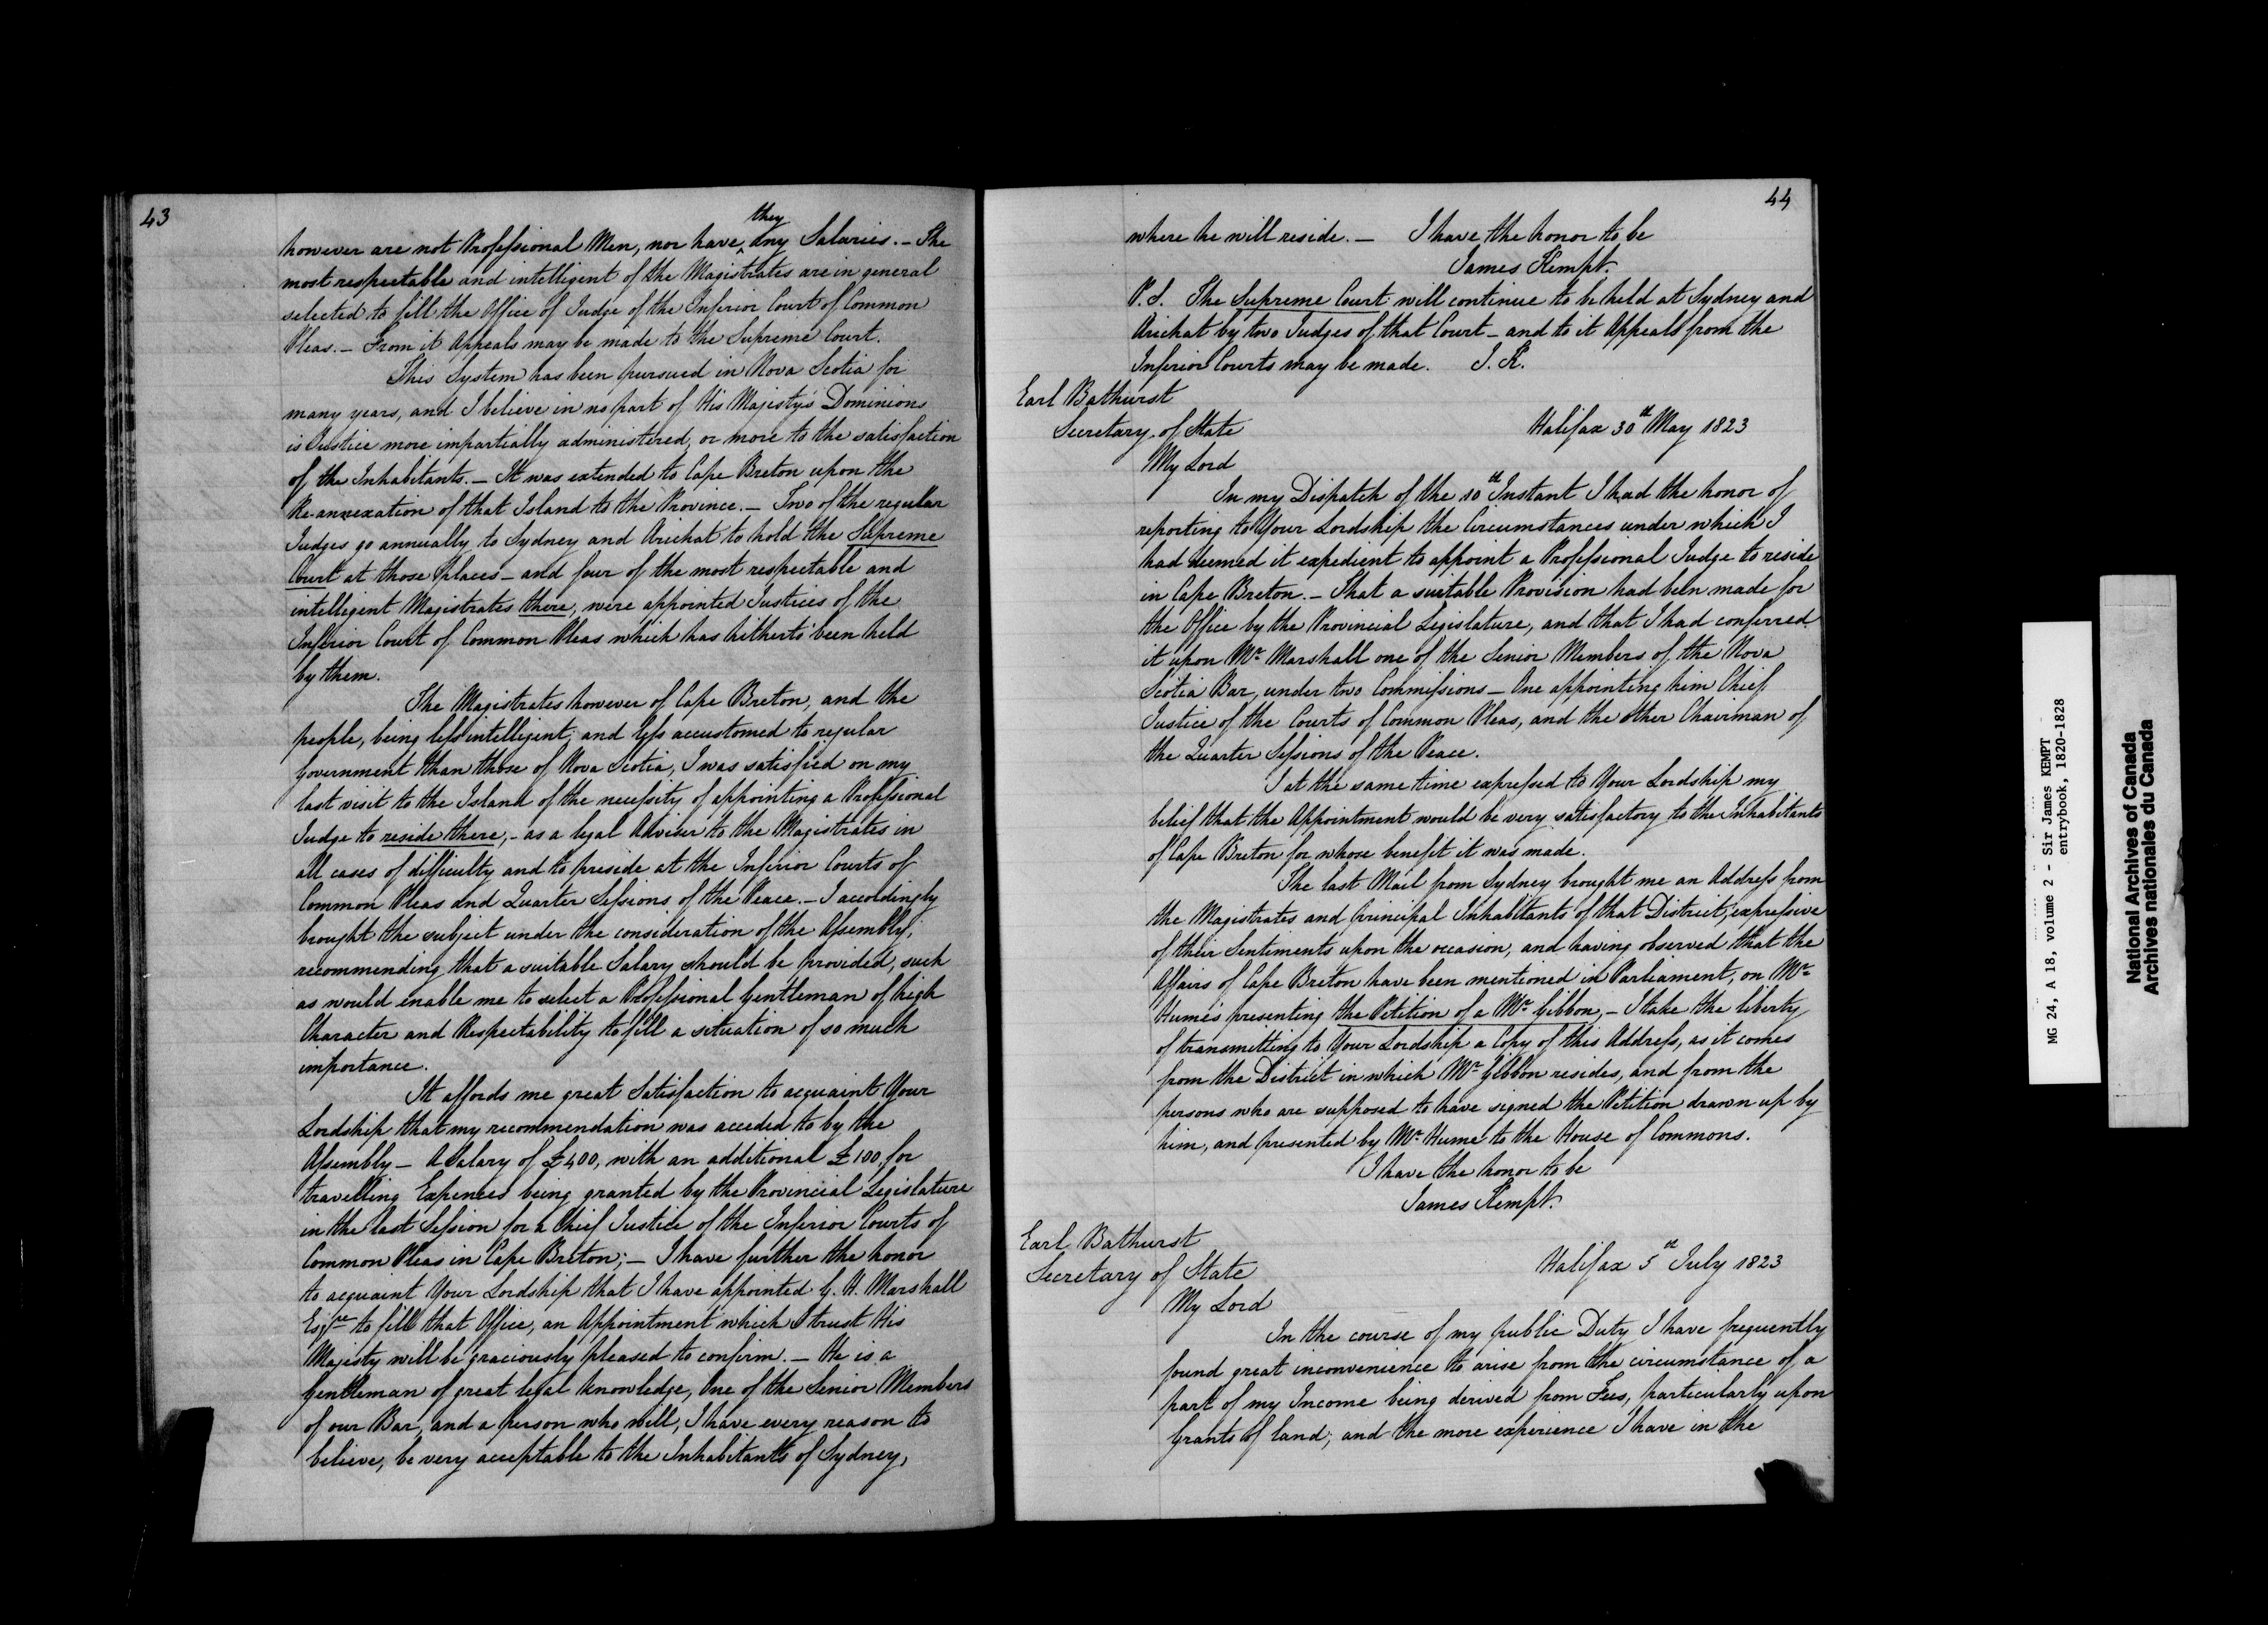 43
however are not Professional Men, nor have they any Salaries. – The
most respectable and intelligent of the Magistrates are in general
selected to fill the Office of Judge of the Inferior Court of Common
Pleas. – From it Appeals may be made to the Supreme Court.
This System has been pursued in Nova Scotia for
many years, and I believe in no part of His Majesty's Dominions
is Justice more impartially administered, or more to the satisfaction
of the Inhabitants. – It was extended to Cape Breton upon the
Re-annexation of that Island to the Province. – Two of the regular
Judges go annually to Sydney and Arichat to hold the Supreme
Court at those places – and four of the most respectable and
intelligent Magistrates there, were appointed Justices of the
Inferior Court of Common Pleas which has hitherto been held
by them.
The Magistrates however of Cape Breton, and the
people, being less intelligent, and less accustomed to regular
Government than those of Nova Scotia, I was satisfied on my
last visit to the Island of the necessity of appointing a Professional
Judge to reside there, – as a legal Adviser to the Magistrates in
all cases of difficulty and to preside at the Inferior Courts of
Common Pleas and Quarter Sessions of the Peace. – I accordingly
brought the subject under the consideration of the Assembly,
recommending that a suitable Salary should be provided, such
as would enable me to select a Professional Gentleman of high
Character and Respectability to fill a situation of so much
importance.
It affords me great Satisfaction to acquaint Your
Lordship that my recommendation was acceded to by the
Assembly – A Salary of £400, with an additional £100 for
travelling Expences being granted by the Provincial Legislature
in the last Session for a Chief Justice of the Inferior Courts of
Common Pleas in Cape Breton; – I have further the honor
to acquaint Your Lordship that I have appointed G. H. Marshall
Esqre to fill that Office, an Appointment which I trust His
Majesty will be graciously pleased to confirm. – He is a
Gentleman of great legal knowledge, One of the Senior Members
of our Bar, and a person who will, I have every reason to
believe, be very acceptable to the Inhabitants of Sydney,
44
where he will reside. – I have the honor to be
James Kempt.
P.S. The Supreme Court will continue to be held at Sydney and
Arichat by two Judges of that Court – and to it Appeals from the
Inferior Courts may be made. J. K.
Earl Bathurst
Secretary of State
Halifax 30th May 1823
My Lord
In my Dispatch of the 10th Instant I had the honor of
reporting to Your Lordship the Circumstances under which I
had deemed it expedient to appoint a Professional Judge to reside
in Cape Breton. – That a suitable Provision had been made for
the Office by the Provincial Legislature, and that I had conferred
it upon Mr Marshall one of the Senior Members of the Nova
Scotia Bar, under two Commissions – One appointing him Chief
Justice of the Courts of Common Pleas, and the other Chairman of
the Quarter Sessions of the Peace.
I at the same time expressed to Your Lordship my
belief that the Appointment would be very satisfactory to the Inhabitants
of Cape Breton for whose benefit it was made.
The last Mail from Sydney brought me an Address from
the Magistrates and principal Inhabitants of that District, expressive
of their Sentiments upon the occasion, and having observed that the
Affairs of Cape Breton have been mentioned in Parliament, on Mr
Hume's presenting the Petition of a Mr Gibbon, – I take the liberty
of transmitting to Your Lordship a Copy of this Address, as it comes
from the District in which Mr Gibbon resides, and from the
persons who are supposed to have signed the Petition drawn up by
him, and presented by Mr Hume to the House of Commons.
I have the honor to be
James Kempt.
Earl Bathurst
Secretary of State
Halifax 5th July 1823
My Lord
In the course of my public Duty I have frequently
found great inconvenience to arise from the circumstance of a
part of my Income being derived from Fees, particularly upon
Grants of land; and the more experience I have in the
MG 24, A 18, volume 2 - Sir James KEMPT
entrybook, 1820-1828
National Archives of Canada
Archives nationales du Canada